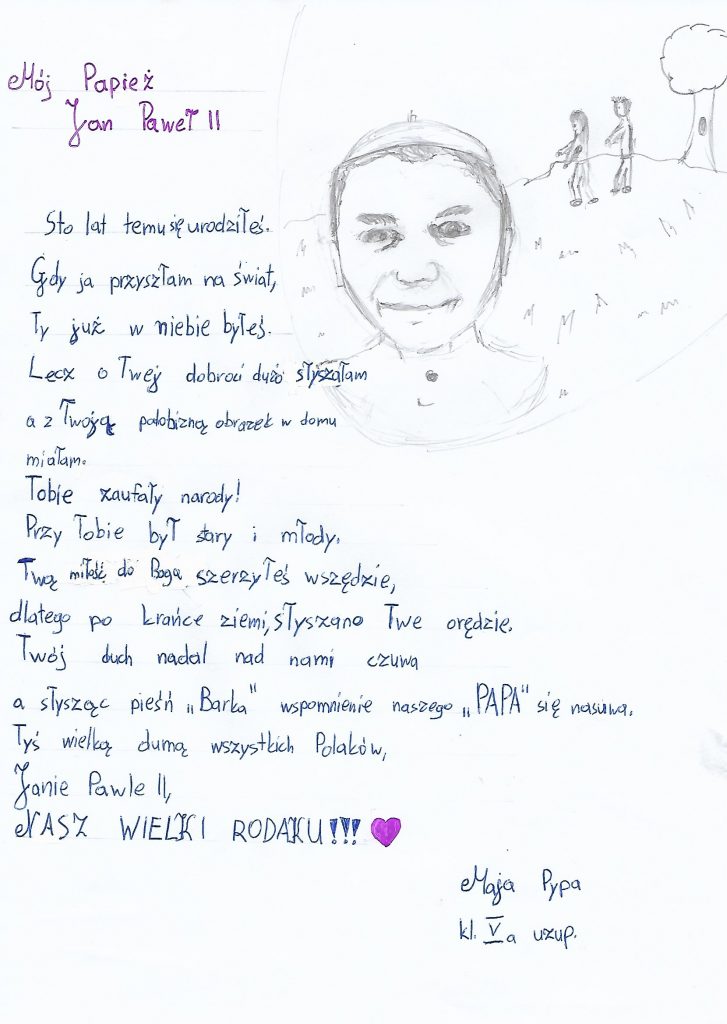 Mój Papież
Jan Paweł II
Sto lat temu się urodziłeś.
Gdy ja przyszłam na świat,
Ty już w niebie byłeś.
Lecz o Twej dobroci dużo słyszałam
a z Twoją podobizną obrazek w domu
miałam.
Tobie zaufały narody!
Przy Tobie był stary i młody.
Twą miłość do Boga szerzyłeś wszędzie,
dlatego po krańce ziemi, słyszano Twe orędzie.
Twój duch nadal nad nami czuwa
a słysząc pieśń „Barka" wspomnienie naszego „PAPA" się nasuwa.
Tyś wielką dumą wszystkich Polaków,
Janie Pawle II,
NASZ WIELKI RODAKU!!!
Maja Pypa
kl. V a uzup.